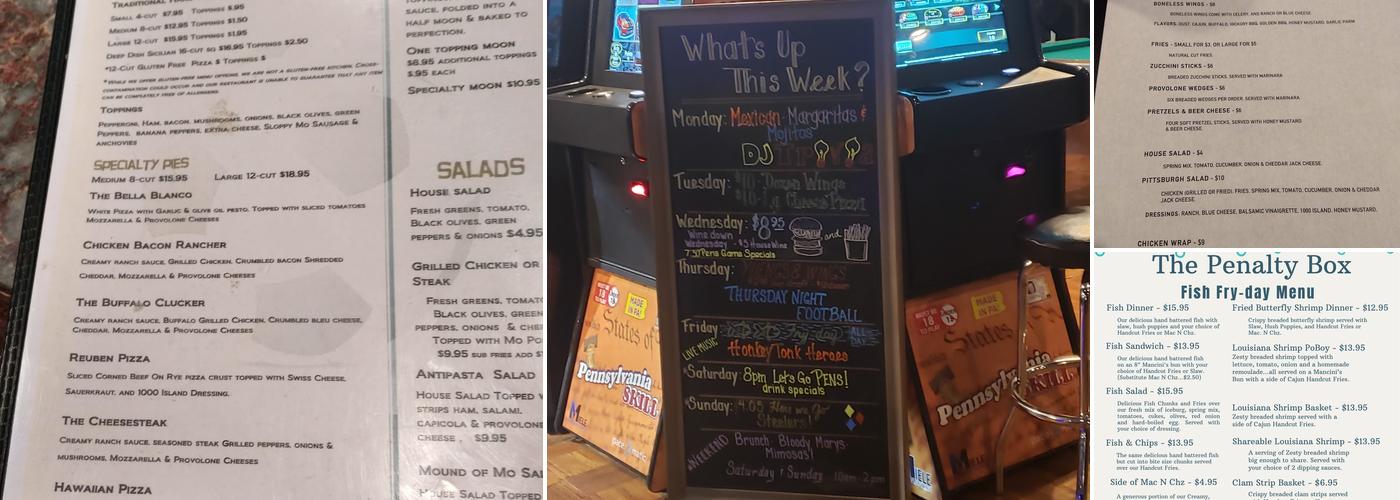 TRADITIONAL
SMALL 4-CUT $7.95 TOPPINGS $.95
MEDIUM 8-CUT $12.95 TOPPINGS $1.50
LARGE 12-CUT $15.95 TOPPINGS $1.95
DEEP DISH SICILIAN 16-CUT SQ $16.95 TOPPINGS $2.50
*12-CUT GLUTEN FREE PIZZA $ TOPPINGS $
*WHILE WE OFFER GLUTEN-FREE MENU OPTIONS, WE ARE NOT A GLUTEN-FREE KITCHEN. CROSS-
CONTAMINATION COULD OCCUR AND OUR RESTAURANT IS UNABLE TO GUARANTEE THAT ANY ITEM
CAN BE COMPLETELY FREE OF ALLERGENS.
TOPPINGS
PEPPERONI, HAM, BACON, MUSHROOMS, ONIONS, BLACK OLIVES, GREEN
PEPPERS, BANANA PEPPERS, EXTRA CHEESE, SLOPPY MO SAUSAGE &
ANCHOVIES
SPECIALTY PIES
MEDIUM 8-CUT $15.95 LARGE 12-CUT $18.95
THE BELLA BLANCO
WHITE PIZZA WITH GARLIC & OLIVE OIL PESTO. TOPPED WITH SLICED TOMATOES
MOZZARELLA & PROVOLONE CHEESES
CHICKEN BACON RANCHER
CREAMY RANCH SAUCE, GRILLED CHICKEN, CRUMBLED BACON SHREDDED
CHEDDAR, MOZZARELLA & PROVOLONE CHEESES
THE BUFFALO CLUCKER
CREAMY RANCH SAUCE, BUFFALO GRILLED CHICKEN, CRUMBLED BLEU CHEESE,
CHEDDAR, MOZZARELLA & PROVOLONE CHEESES
REUBEN PIZZA
SLICED CORNED BEEF ON RYE PIZZA CRUST TOPPED WITH SWISS CHEESE,
SAUERKRAUT, AND 1000 ISLAND DRESSING.
THE CHEESESTEAK
CREAMY RANCH SAUCE, SEASONED STEAK GRILLED PEPPERS, ONIONS &
MUSHROOMS, MOZZARELLA & PROVOLONE CHEESES
HAWAIIAN PIZZA
SAUCE, FOLDED INTO A
HALF MOON & BAKED TO
PERFECTION.
ONE TOPPING MOON
$8.95 ADDITIONAL TOPPINGS
$.95 EACH
SPECIALTY MOON $10.95
SALADS
HOUSE SALAD
FRESH GREENS, TOMATO,
BLACK OLIVES, GREEN
PEPPERS & ONIONS $4.95
GRILLED CHICKEN OR
STEAK
FRESH GREENS, TOMATO
BLACK OLIVES, GREEN
PEPPERS, ONIONS & CHE
TOPPED WITH MO PO
$9.95 SUB FRIES ADD $1
ANTIPASTA SALAD
HOUSE SALAD TOPPED W
STRIPS HAM, SALAMI,
CAPICOLA & PROVOLONE
CHEESE. $9.95
MOUND OF MO SAL
HOUSE SALAD TOPPED
What's Up
This Week?
Monday: Mexican- Margaritas &
Mojitos
DJ
Tuesday: $10- Dozen Wings
Wednesday: $8.95 and
Wine down
Wednesday - $5 House Wine
7:30 Pens Game Specials
Thursday: WINGS
THURSDAY NIGHT
FOOTBALL
Friday ALL DAY
LIVE MUSIC Honky Tonk Heroes
*Saturday: 8pm Let's Go PENS!
drink specials
*Sunday: 4:05 Here we Go
Steelers!
*WEEKEND Brunch- Bloody Marys-
Mimosas!
Saturday & Sunday 10am - 2pm
MADE IN PA!
States of
Pennsylvania
SKILL
MIELE
MUST BE 18 TO PLAY
MADE IN PA!
States of
Pennsylvania
SKILL
MIELE
BONELESS WINGS - $8
BONELESS WINGS COME WITH CELERY, AND RANCH OR BLUE CHEESE.
FLAVORS: DUST, CAJUN, BUFFALO, HICKORY BBQ, GOLDEN BBQ, HONEY MUSTARD, GARLIC PARM
FRIES - SMALL FOR $3, OR LARGE FOR $5
NATURAL CUT FRIES.
ZUCCHINI STICKS - $6
BREADED ZUCCHINI STICKS. SERVED WITH MARINARA
PROVOLONE WEDGES - $6
SIX BREADED WEDGES PER ORDER. SERVED WITH MARINARA
PRETZELS & BEER CHEESE - $6
FOUR SOFT PRETZEL STICKS. SERVED WITH HONEY MUSTARD
& BEER CHEESE.
HOUSE SALAD - $4
SPRING MIX, TOMATO, CUCUMBER, ONION & CHEDDAR JACK CHEESE.
PITTSBURGH SALAD - $10
CHICKEN (GRILLED OR FRIED), FRIES, SPRING MIX, TOMATO, CUCUMBER, ONION & CHEDDAR
JACK CHEESE.
DRESSINGS: RANCH, BLUE CHEESE, BALSAMIC VINAIGRETTE, 1000 ISLAND, HONEY MUSTARD,
CHICKEN WRAP - $9
The Penalty Box
Fish Fry-day Menu
Fish Dinner - $15.95
Our delicious hand battered fish with
slaw, hush puppies and your choice of
Handcut Fries or Mac N Chz.
Fish Sandwich - $13.95
Our delicious hand battered fish
on an 8" Mancini's bun with your
choice of Handcut Fries or Slaw.
(Substitute Mac N Chz...$2.50)
Fish Salad - $15.95
Delicious Fish Chunks and Fries over
our fresh mix of iceburg, spring mix,
tomatoes, cukes, olives, red onion
and hard-boiled egg. Served with
your choice of dressing.
Fish & Chips - $13.95
The same delicious hand battered fish
but cut into bite size chunks served
over our Handcut Fries.
Side of Mac N Chz - $4.95
A generous portion of our Creamy,
Fried Butterfly Shrimp Dinner - $12.95
Crispy breaded butterfly shrimp served with
Slaw, Hush Puppies, and Handcut Fries or
Mac N. Chz.
Louisiana Shrimp PoBoy - $13.95
Zesty breaded shrimp topped with
lettuce, tomato, onion and a homemade
remoulade...all served on a Mancini's
Bun with a side of Cajun Handcut Fries.
Louisiana Shrimp Basket - $13.95
Zesty breaded shrimp served with a
side of Cajun Handcut Fries.
Shareable Louisiana Shrimp - $13.95
A serving of Zesty breaded shrimp
big enough to share. Served with
your choice of 2 dipping sauces.
Clam Strip Basket - $6.95
Crispy breaded clam strips served